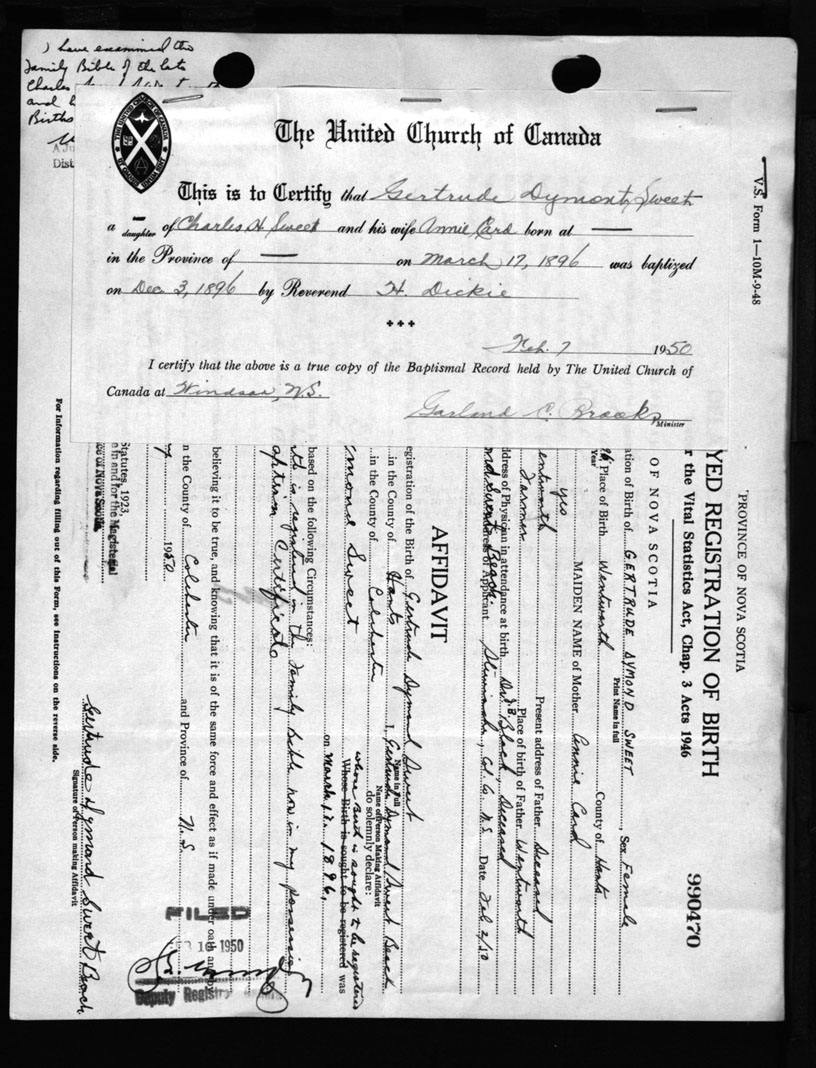 I have examined the
Family Bible of the late
Charles
and
Births
Dist
The United Church of Canada
This is to Certify that Gertrude Dymont Sweet
a — daughter of Charles H Sweet and his wife Annie Card born at —
in the Province of — on March 17, 1896 was baptized
on Dec 3, 1896 by Reverend H. Dickie
Feb. 7 1950
I certify that the above is a true copy of the Baptismal Record held by The United Church of
Canada at Windsor, N.S.
Garland C. Brooks
Minister
V.S. Form 1—10M-9-48
PROVINCE OF NOVA SCOTIA
990470
YED REGISTRATION OF BIRTH
r the Vital Statistics Act, Chap. 3 Acts 1946
OF NOVA SCOTIA
tion of Birth of GERTRUDE DYMOND SWEET, Sex Female
Print Name in full
Year Place of Birth Wentworth County of Hants
yes MAIDEN NAME of Mother Annie Card
entworth Present address of Father Deceased
Farmer Place of birth of Father Wentworth
ddress of Physician in attendance at birth Dr. J.B. Black, Deceased
Beach. Address of Applicant Col. Co. N.S. Date Feb 2/50
AFFIDAVIT
egistration of the Birth of Gertrude Dymond Sweet
Name in Full
in the County of Hants I, Gertrude Dymond Sweet Beach
Name of Person Making Affidavit
in the County of Colchester do solemnly declare:
whose birth is sought to be registered
ymond Sweet Whose Birth is sought to be registered was
on March 17. 1896.
based on the following Circumstances:
th is registered in the family bible now in my possession
aptism Certificate
believing it to be true, and knowing that it is of the same force and effect as if made under oath and by
in the County of Colchester and Province of N.S.
1950
Statutes, 1923,
e in and for the Magisterial
ce of Nova Scotia
FILED
FEB 16 1950
Deputy Registrar
Gertrude Dymond Sweet Beach
Signature of Person making Affidavit
For Information regarding filling out of this Form, see Instructions on the reverse side.